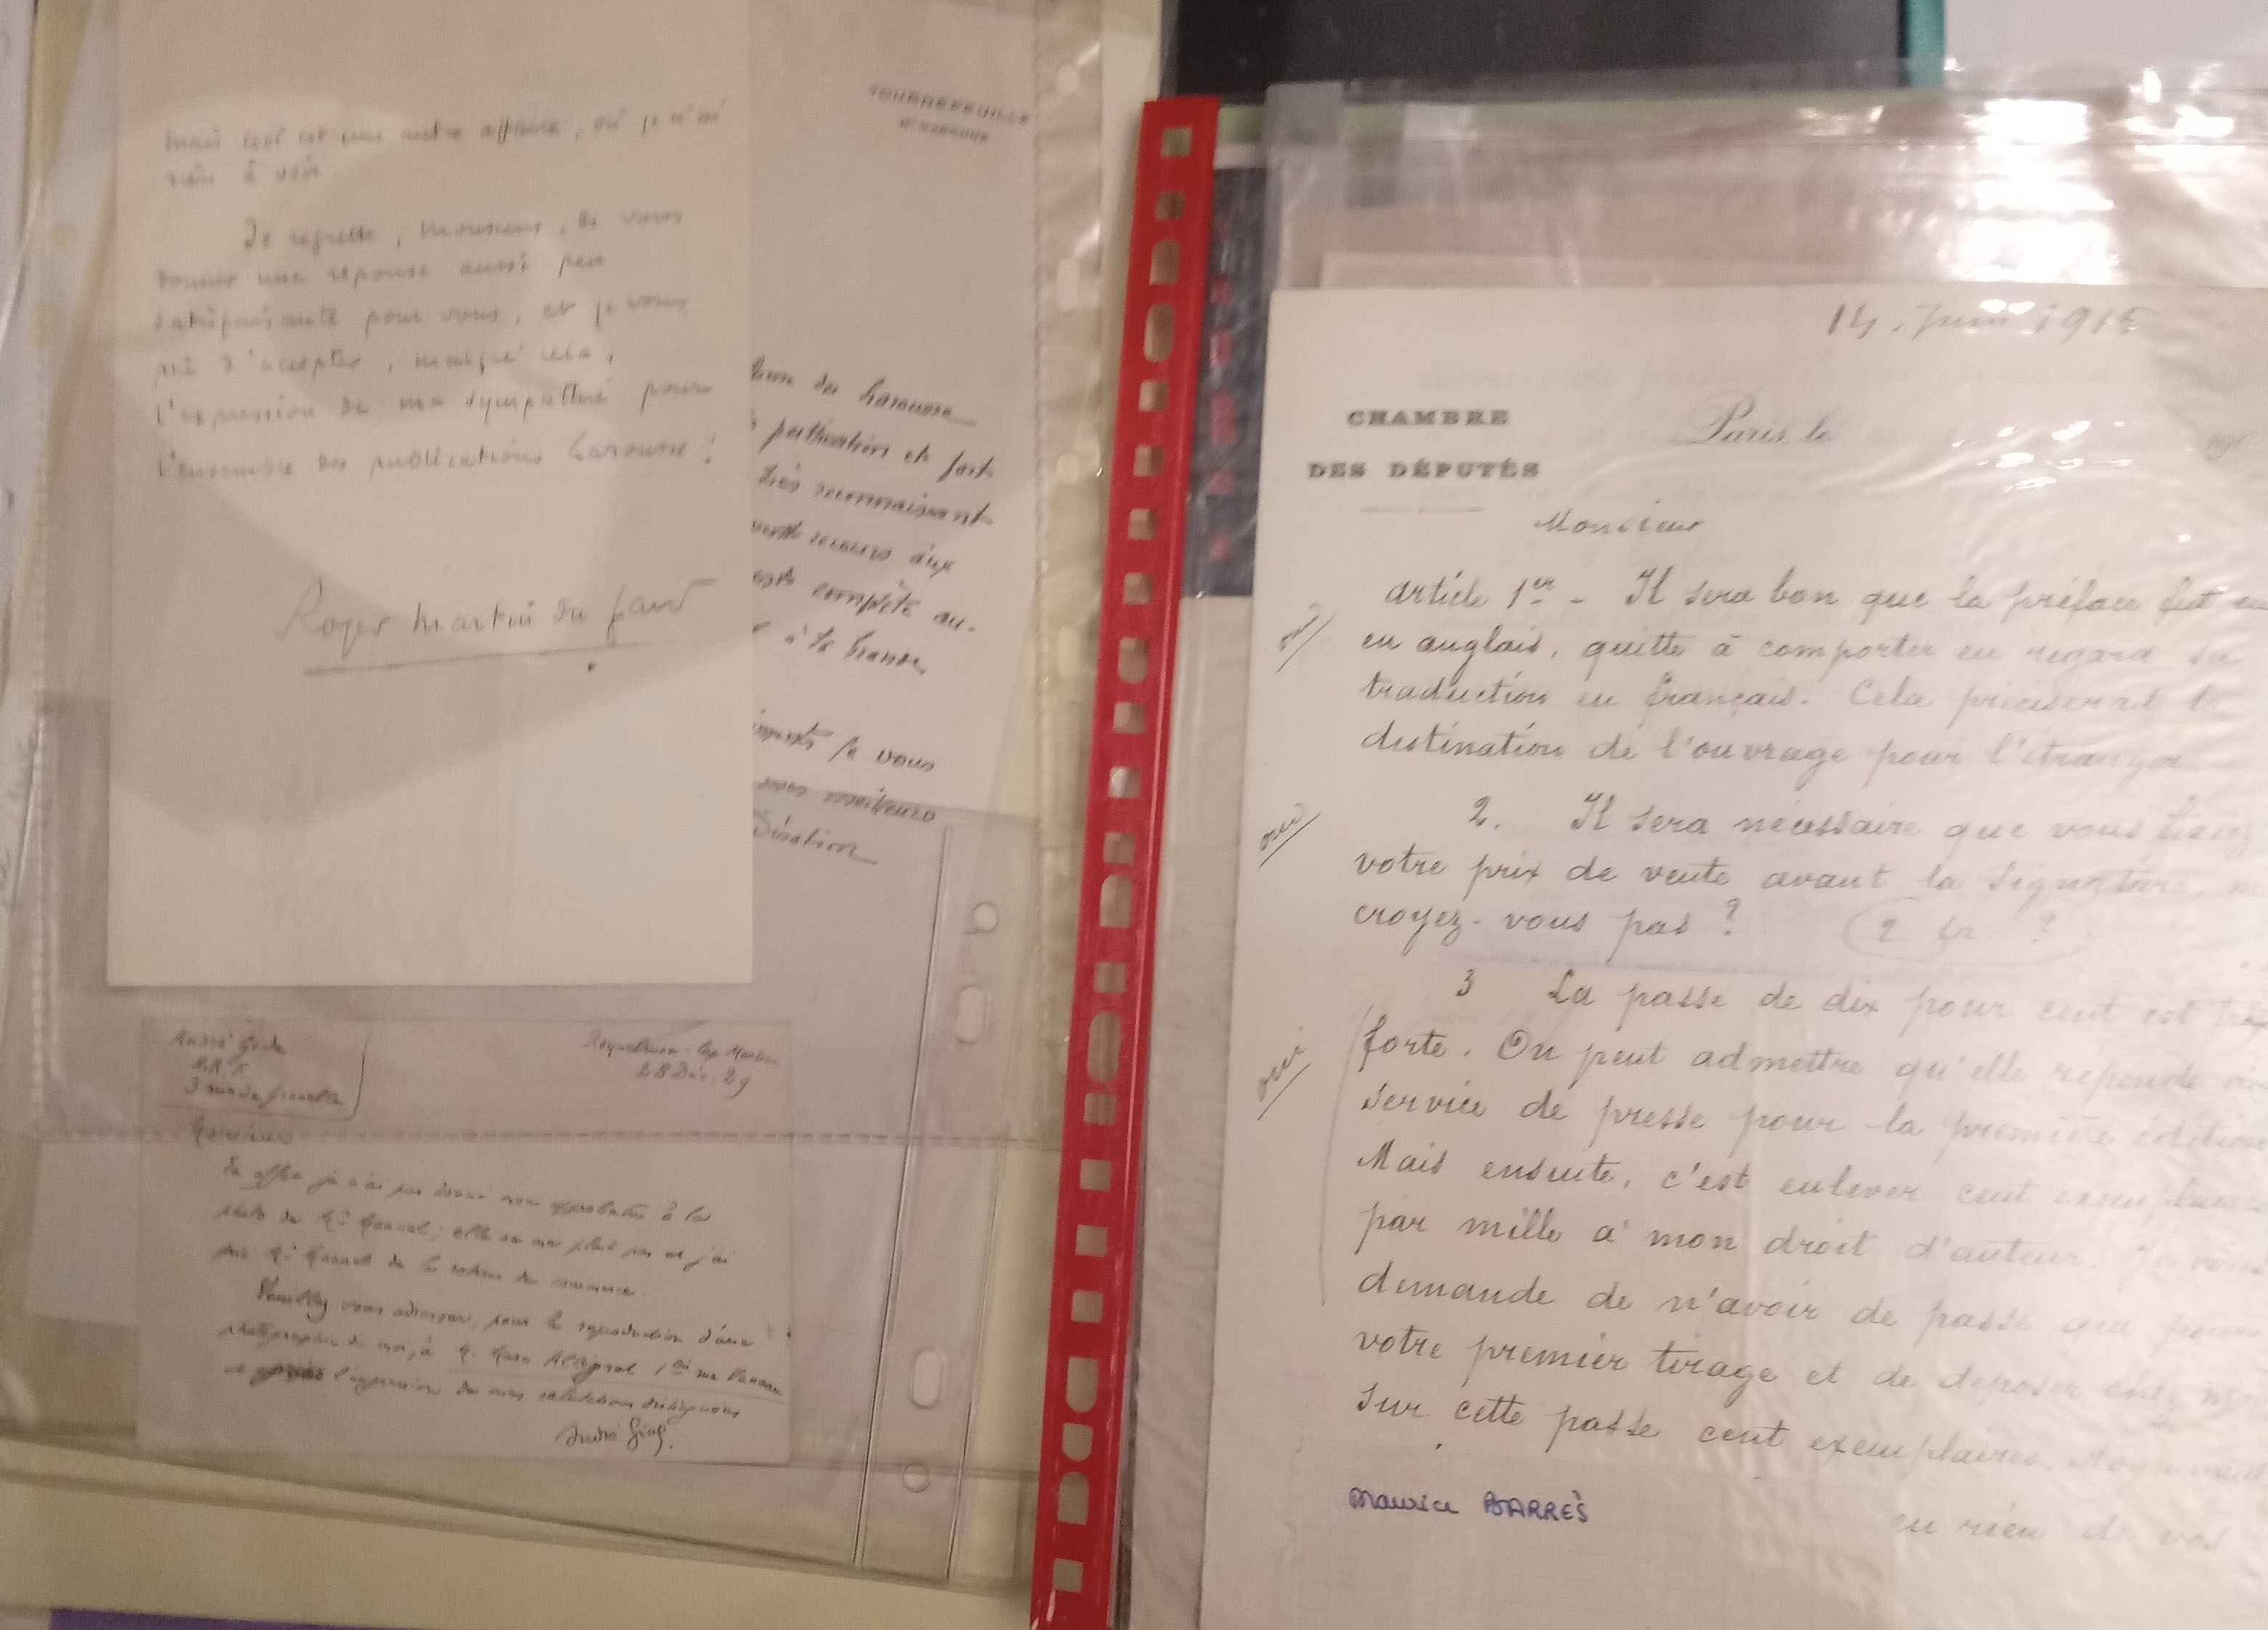 mais ceci est une autre affaire, où je n'ai
rien à voir.
Je regrette, Monsieur, de vous
donner une réponse aussi peu
satisfaisante pour vous, et je vous
prie d'accepter, malgré cela,
l'expression de ma sympathie pour
l'ensemble des publications Larousse !
Roger Martin du Gard
TOURNEFEUILLE
Hte GARONNE
du Larousse
et fort
très reconnaissant
recours aux
complète au-
à la
je vous
mes meilleurs
André Gide
N.R.F.
3 rue de Grenelle
Roquebrune - Cap Martin
28 Déc. 29
Monsieur
En effet je n'ai pas donné mon approbation à la
photo de Mr Manuel ; elle ne me plait pas et j'ai
prié Mr Manuel de la retirer du commerce.
Veuillez vous adresser, pour la reproduction d'une
photographie de moi, à M. Marc Allégret 1 bis rue Vaneau
et l'expression de mes salutations distinguées
André Gide.
14. Juin 1915
CHAMBRE
DES DÉPUTÉS
Paris, le
190
Monsieur
article 1er - Il sera bon que la préface fut
oui
en anglais, quitte à comporter en regard sa
traduction en français. Cela préciserait la
destination de l'ouvrage pour l'étranger.
2. Il sera nécessaire que vous fixiez
oui
votre prix de vente avant la signature, ne
croyez-vous pas ? 2 fr ?
3 La passe de dix pour cent est trop
oui
forte. On peut admettre qu'elle reponde
service de presse pour la première édition
Mais ensuite, c'est enlever cent exemplaires
par mille à mon droit d'auteur. Je vous
demande de n'avoir de passe que pour
votre premier tirage et de deposer chez moi
sur cette passe cent exemplaires. Moyennant
Maurice BARRÈS
en rien de vos